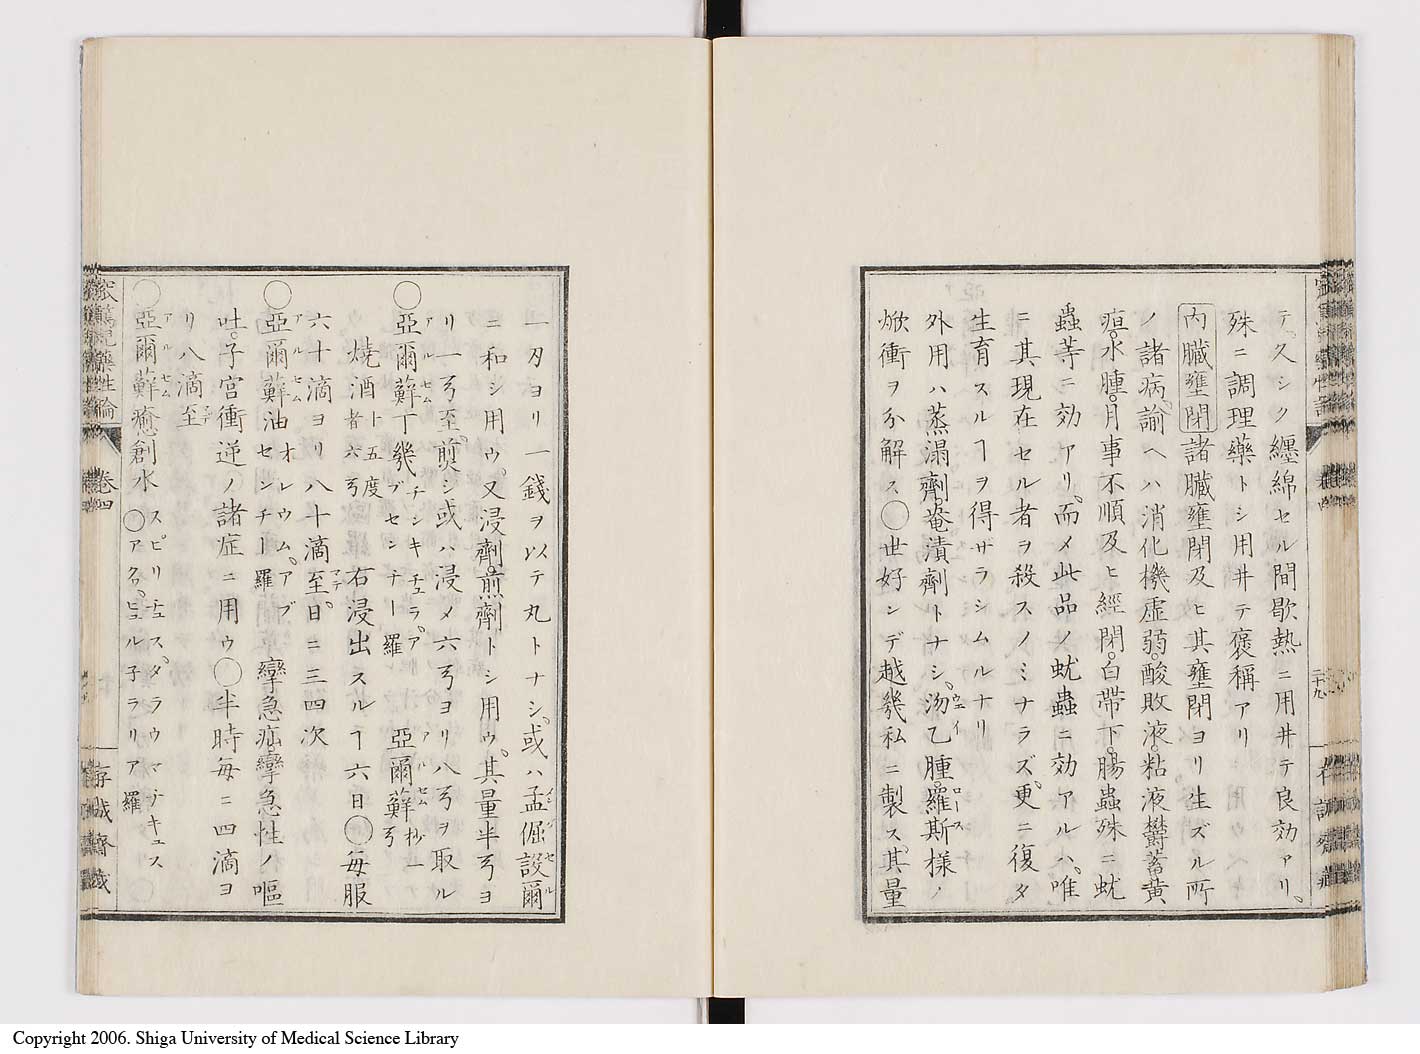 テ久シク纏綿セル間歇熱ニ用井テ良効アリ、
殊ニ調理藥トシ用井テ褒稱アリ
内臓壅閉諸臓壅閉及ヒ其壅閉ヨリ生ズル所
ノ諸病、諭ヘハ消化機虚弱。酸敗液。粘液欝蓄黄
疸。水腫。月事不順及ヒ經閉。白帶下。腸蟲殊ニ蚘
蟲等ニ効アリ、而メ此品ノ蚘蟲ニ効アルハ、唯
ニ其現在セル者ヲ殺スノミナラズ、更ニ復タ
生育スルヿヲ得ザラシムルナリ
外用ハ蒸溻劑。菴漬劑トナシ、汤乙腫。羅斯樣ノ
ウエイ
ロース
焮衝ヲ分解ス〇世好ンデ越幾私ニ製ス、其量
二十九
一刄ヨリ一錢ヲ以テ丸トナシ、或ハ孟倔設爾
メンゲセル
ニ和シ用ウ、又浸劑。煎劑トシ用ウ、其量半弓ヨ
リ一弓至、煎シ或ハ浸メ六弓ヨリ八弓ヲ取ル
〇亞爾蘇丁幾 チンキチュラ、アブセンチー羅 亞爾蘇 抄一弓
アルセム
アルセム
燒酒 者六弓五度 右浸出スルヿ六日〇每服
六十滴ヨリ八十滴至、日ニ三四次
マデ
〇亞爾蘇油 オレウム、アブセンチー羅 攣急疝。攣急性ノ嘔
アルセム
吐。子宮衝逆ノ諸症ニ用ウ〇半時每ニ四滴ヨ
リ八滴至
マデ
〇亞爾蘇癒創水 スピリチュス、ダラウマチキュス 〇アクハ、ヒュル子ラリア羅
アルセム
卷四
存誠齋藏